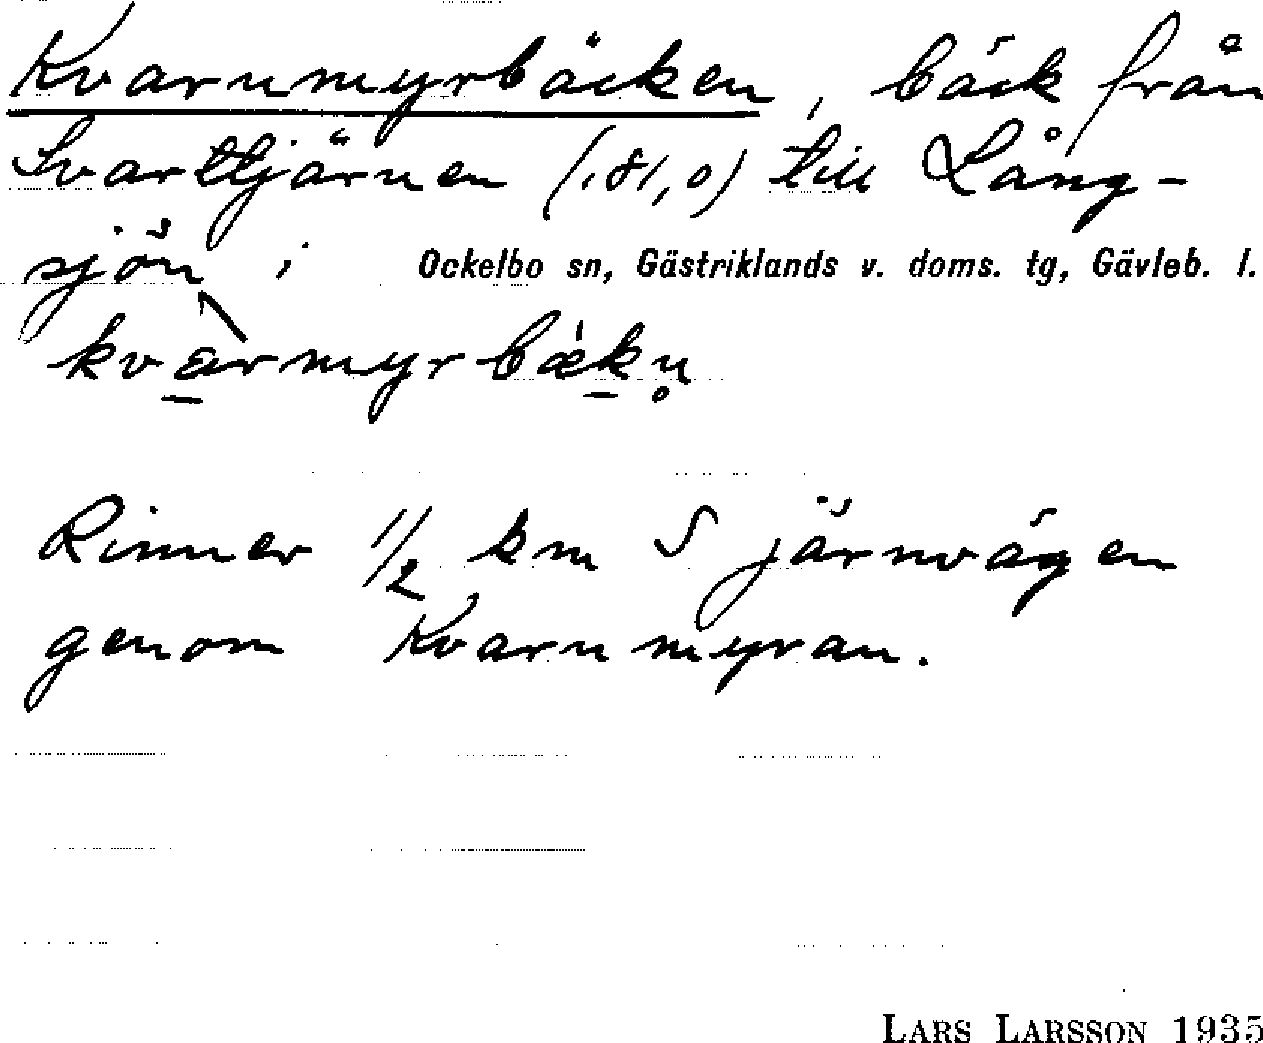 Kvarnmyrbäcken, bäck från
Svarttjärnen (.81,0) till Lång-
sjön i Ockelbo sn, Gästriklands v. doms. tg, Gävleb. l.
kvàrmyrbæ̀kn̥
Rinner 1/2 km S järnvägen
genom Kvarnmyran.
LARS LARSSON 1935